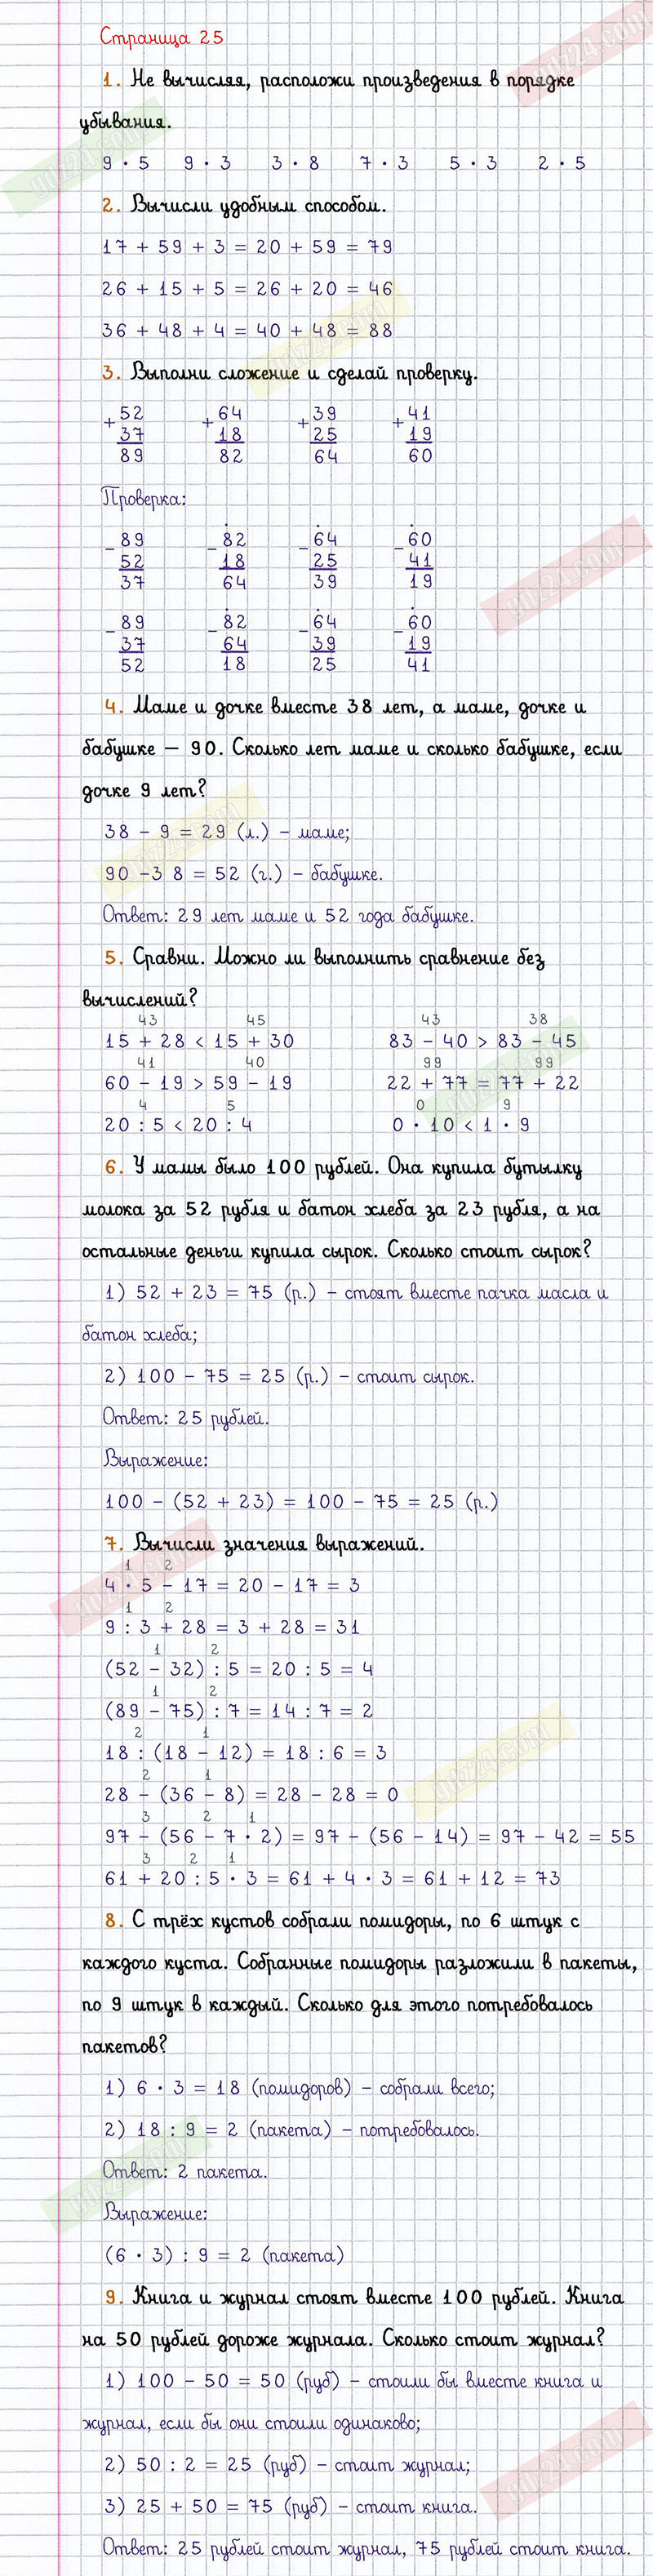 Страница 25
1. Не вычисляя, расположи произведения в порядке
убывания.
9 · 5 9 · 3 3 · 8 7 · 3 5 · 3 2 · 5
2. Вычисли удобным способом.
17 + 59 + 3 = 20 + 59 = 79
26 + 15 + 5 = 26 + 20 = 46
36 + 48 + 4 = 40 + 48 = 88
3. Выполни сложение и сделай проверку.
+ 52 + 64 + 39 + 41
37 18 25 19
89 82 64 60
Проверка:
- 89 - 82 - 64 - 60
52 18 25 41
37 64 39 19
- 89 - 82 - 64 - 60
37 64 39 19
52 18 25 41
4. Маме и дочке вместе 38 лет, а маме, дочке и
бабушке – 90. Сколько лет маме и сколько бабушке, если
дочке 9 лет?
38 - 9 = 29 (л.) - маме;
90 -3 8 = 52 (г.) - бабушке.
Ответ: 29 лет маме и 52 года бабушке.
5. Сравни. Можно ли выполнить сравнение без
вычислений?
43 45 43 38
15 + 28 < 15 + 30 83 - 40 > 83 - 45
41 40 99 99
60 - 19 > 59 - 19 22 + 77 = 77 + 22
4 5 0 9
20 : 5 < 20 : 4 0 · 10 < 1 · 9
6. У мамы было 100 рублей. Она купила бутылку
молока за 52 рубля и батон хлеба за 23 рубля, а на
остальные деньги купила сырок. Сколько стоит сырок?
1) 52 + 23 = 75 (р.) - стоят вместе пачка масла и
батон хлеба;
2) 100 - 75 = 25 (р.) - стоит сырок.
Ответ: 25 рублей.
Выражение:
100 - (52 + 23) = 100 - 75 = 25 (р.)
7. Вычисли значения выражений.
1 2
4 · 5 - 17 = 20 - 17 = 3
1 2
9 : 3 + 28 = 3 + 28 = 31
1 2
(52 - 32) : 5 = 20 : 5 = 4
1 2
(89 - 75) : 7 = 14 : 7 = 2
2 1
18 : (18 - 12) = 18 : 6 = 3
2 1
28 - (36 - 8) = 28 - 28 = 0
3 2 1
97 - (56 - 7 · 2) = 97 - (56 - 14) = 97 - 42 = 55
3 2 1
61 + 20 : 5 · 3 = 61 + 4 · 3 = 61 + 12 = 73
8. С трёх кустов собрали помидоры, по 6 штук с
каждого куста. Собранные помидоры разложили в пакеты,
по 9 штук в каждый. Сколько для этого потребовалось
пакетов?
1) 6 · 3 = 18 (помидоров) - собрали всего;
2) 18 : 9 = 2 (пакета) - потребовалось.
Ответ: 2 пакета.
Выражение:
(6 · 3) : 9 = 2 (пакета)
9. Книга и журнал стоят вместе 100 рублей. Книга
на 50 рублей дороже журнала. Сколько стоит журнал?
1) 100 - 50 = 50 (руб) - стоили бы вместе книга и
журнал, если бы они стоили одинаково;
2) 50 : 2 = 25 (руб) - стоит журнал;
3) 25 + 50 = 75 (руб) - стоит книга.
Ответ: 25 рублей стоит журнал, 75 рублей стоит книга.